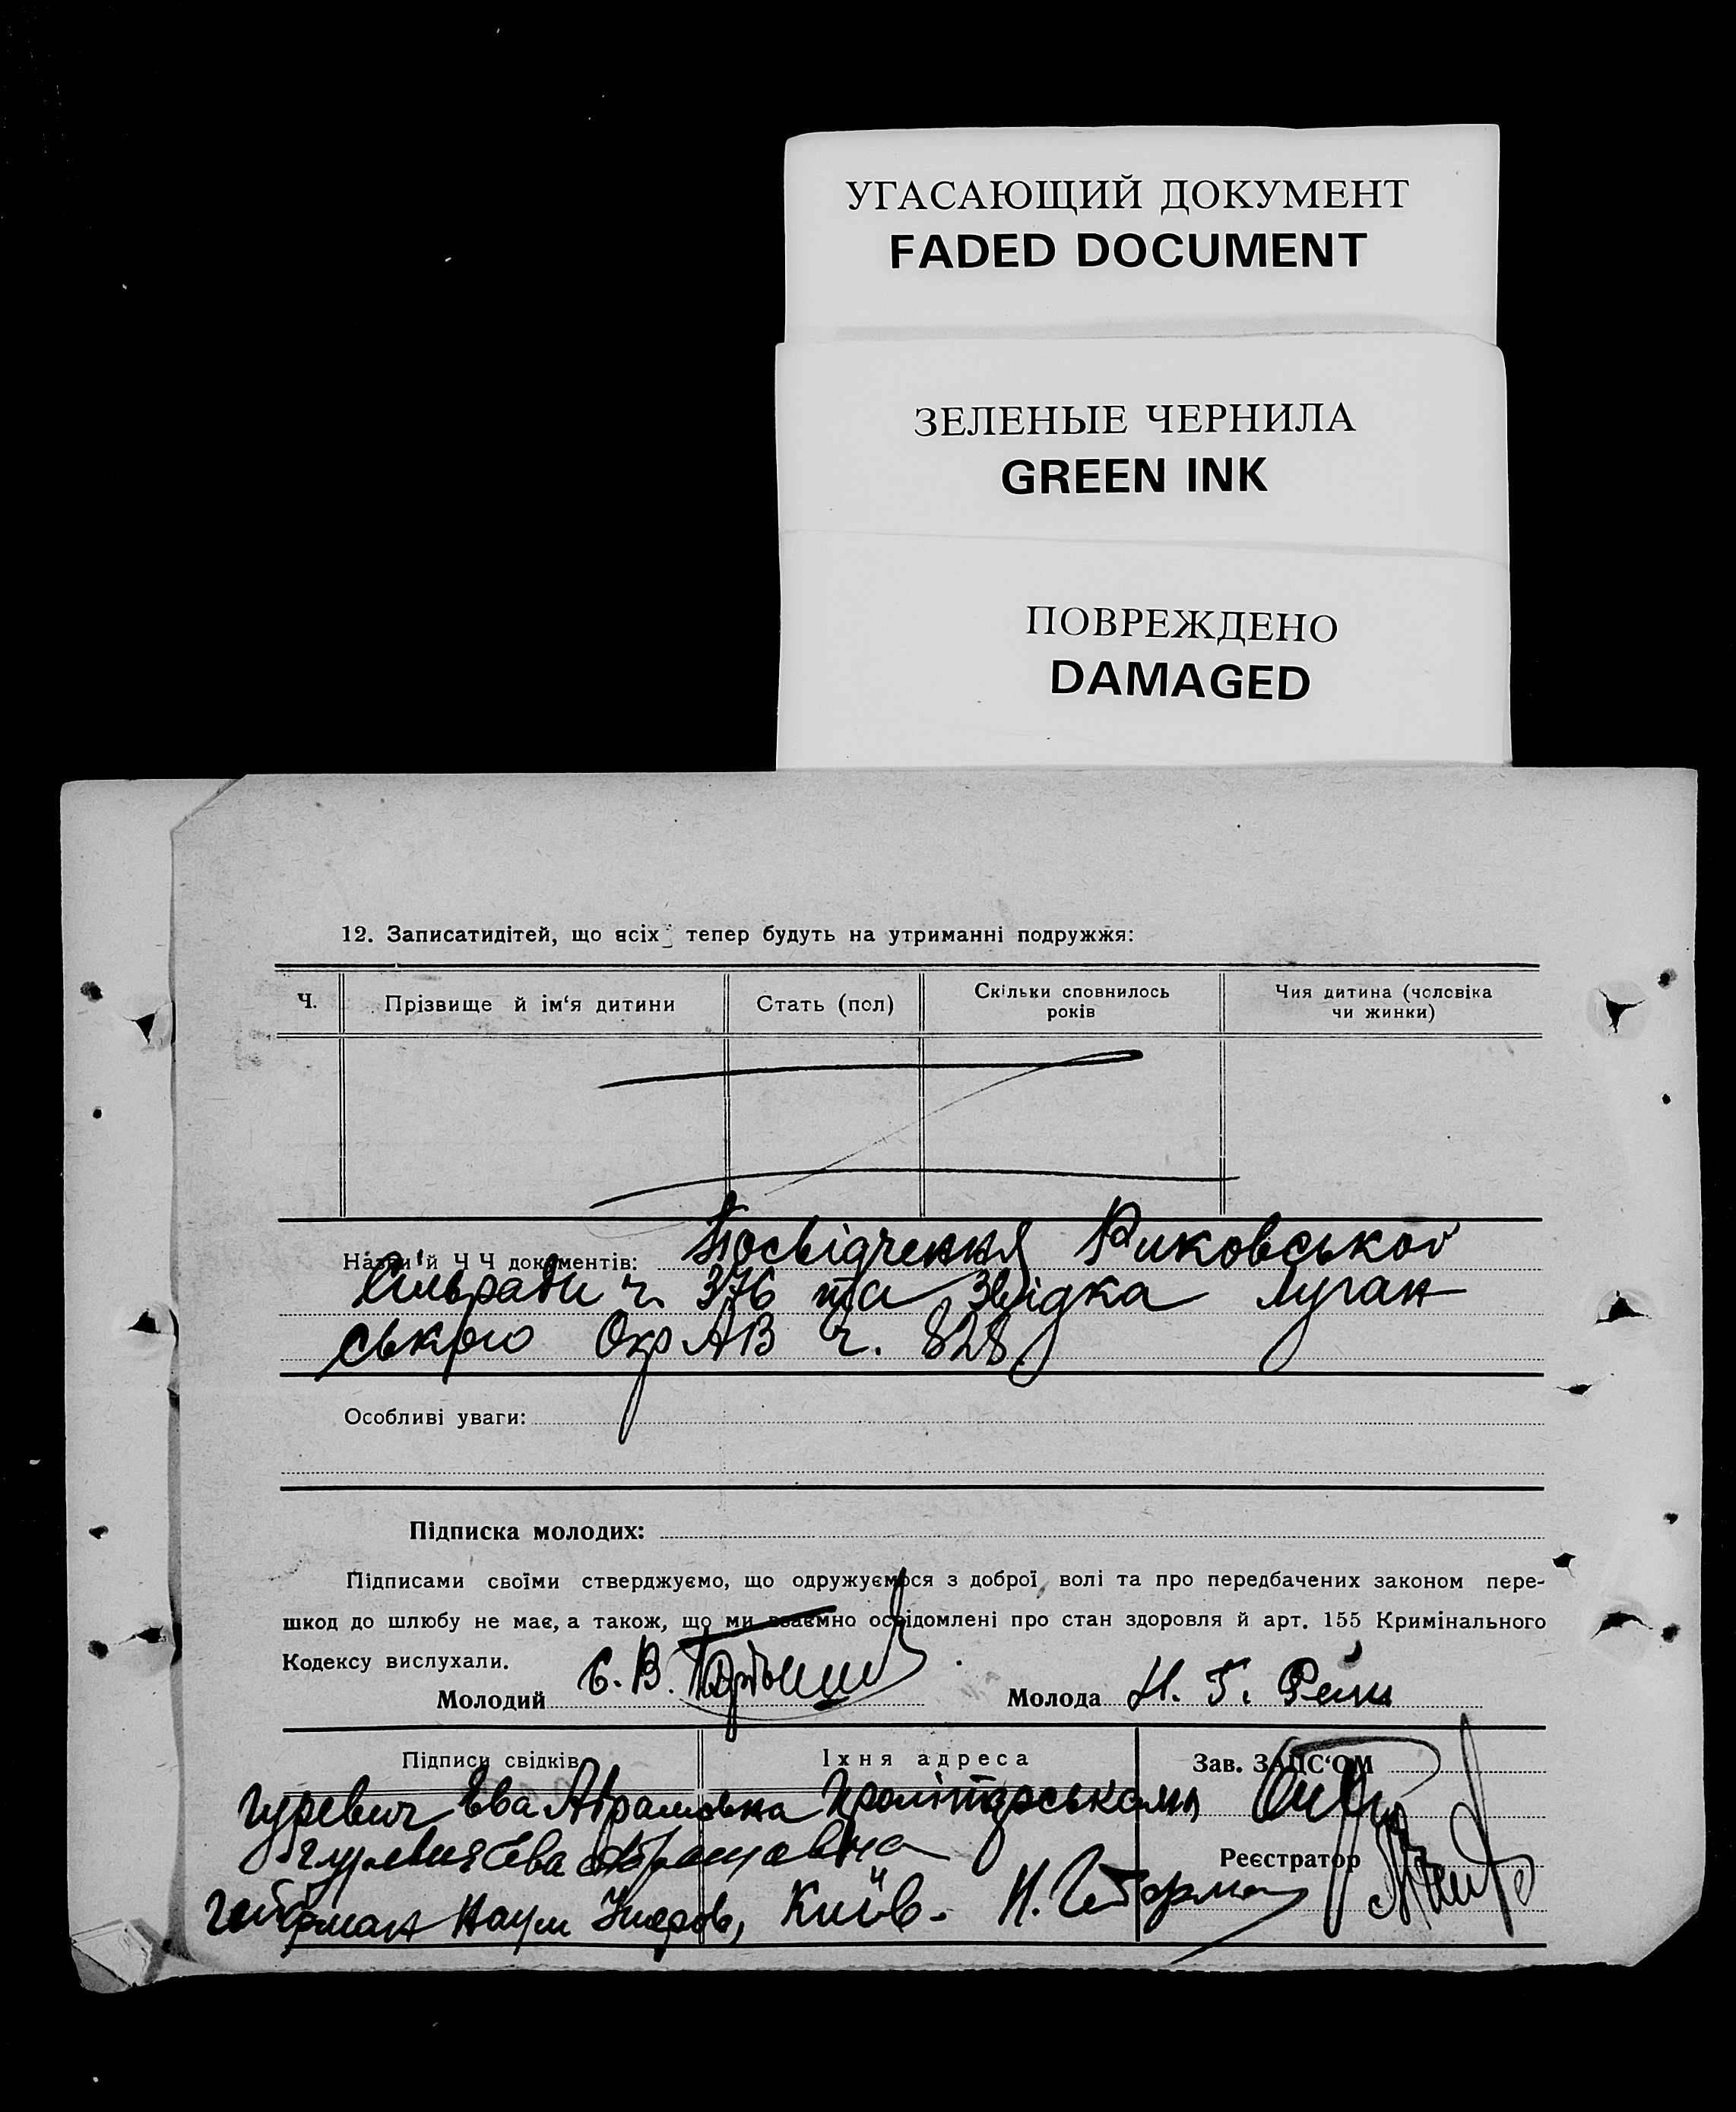 УГАСАЮЩИЙ ДОКУМЕНТ
FADED DOCUMENT
ЗЕЛЕНЫЕ ЧЕРНИЛА
GREEN INK
ПОВРЕЖДЕНО
DAMAGED
12. Записатидітей, що всіх тепер будуть на утриманні подружжя:
Ч.
Прізвище й ім‘я дитини
Стать (пол)
Скільки сповнилось
років
Чия дитина (чоловіка
чи жинки)
Назви й Ч Ч документів: Посвідчення Риковської
Сільради ч. 376 та Звідка Луган
ського Окр АВ ч. 828
Особливі уваги:
Підписка молодих:
Підписами своїми стверджуємо, що одружуємося з доброї волі та про передбачених законом пере-
шкод до шлюбу не має, а також, що ми взаємно освідомлені про стан здоровля й арт. 155 Кримінального
Кодексу вислухали.
Молодий Є. В.
Молода Н. Г. Рейн
Підписи свідків
Їхня адреса
Зав. ЗАПС‘ОМ
Гуревич Єва Абрамовна
Гуревич Ева Абрамовна
Реєстратор
Наум Київ.